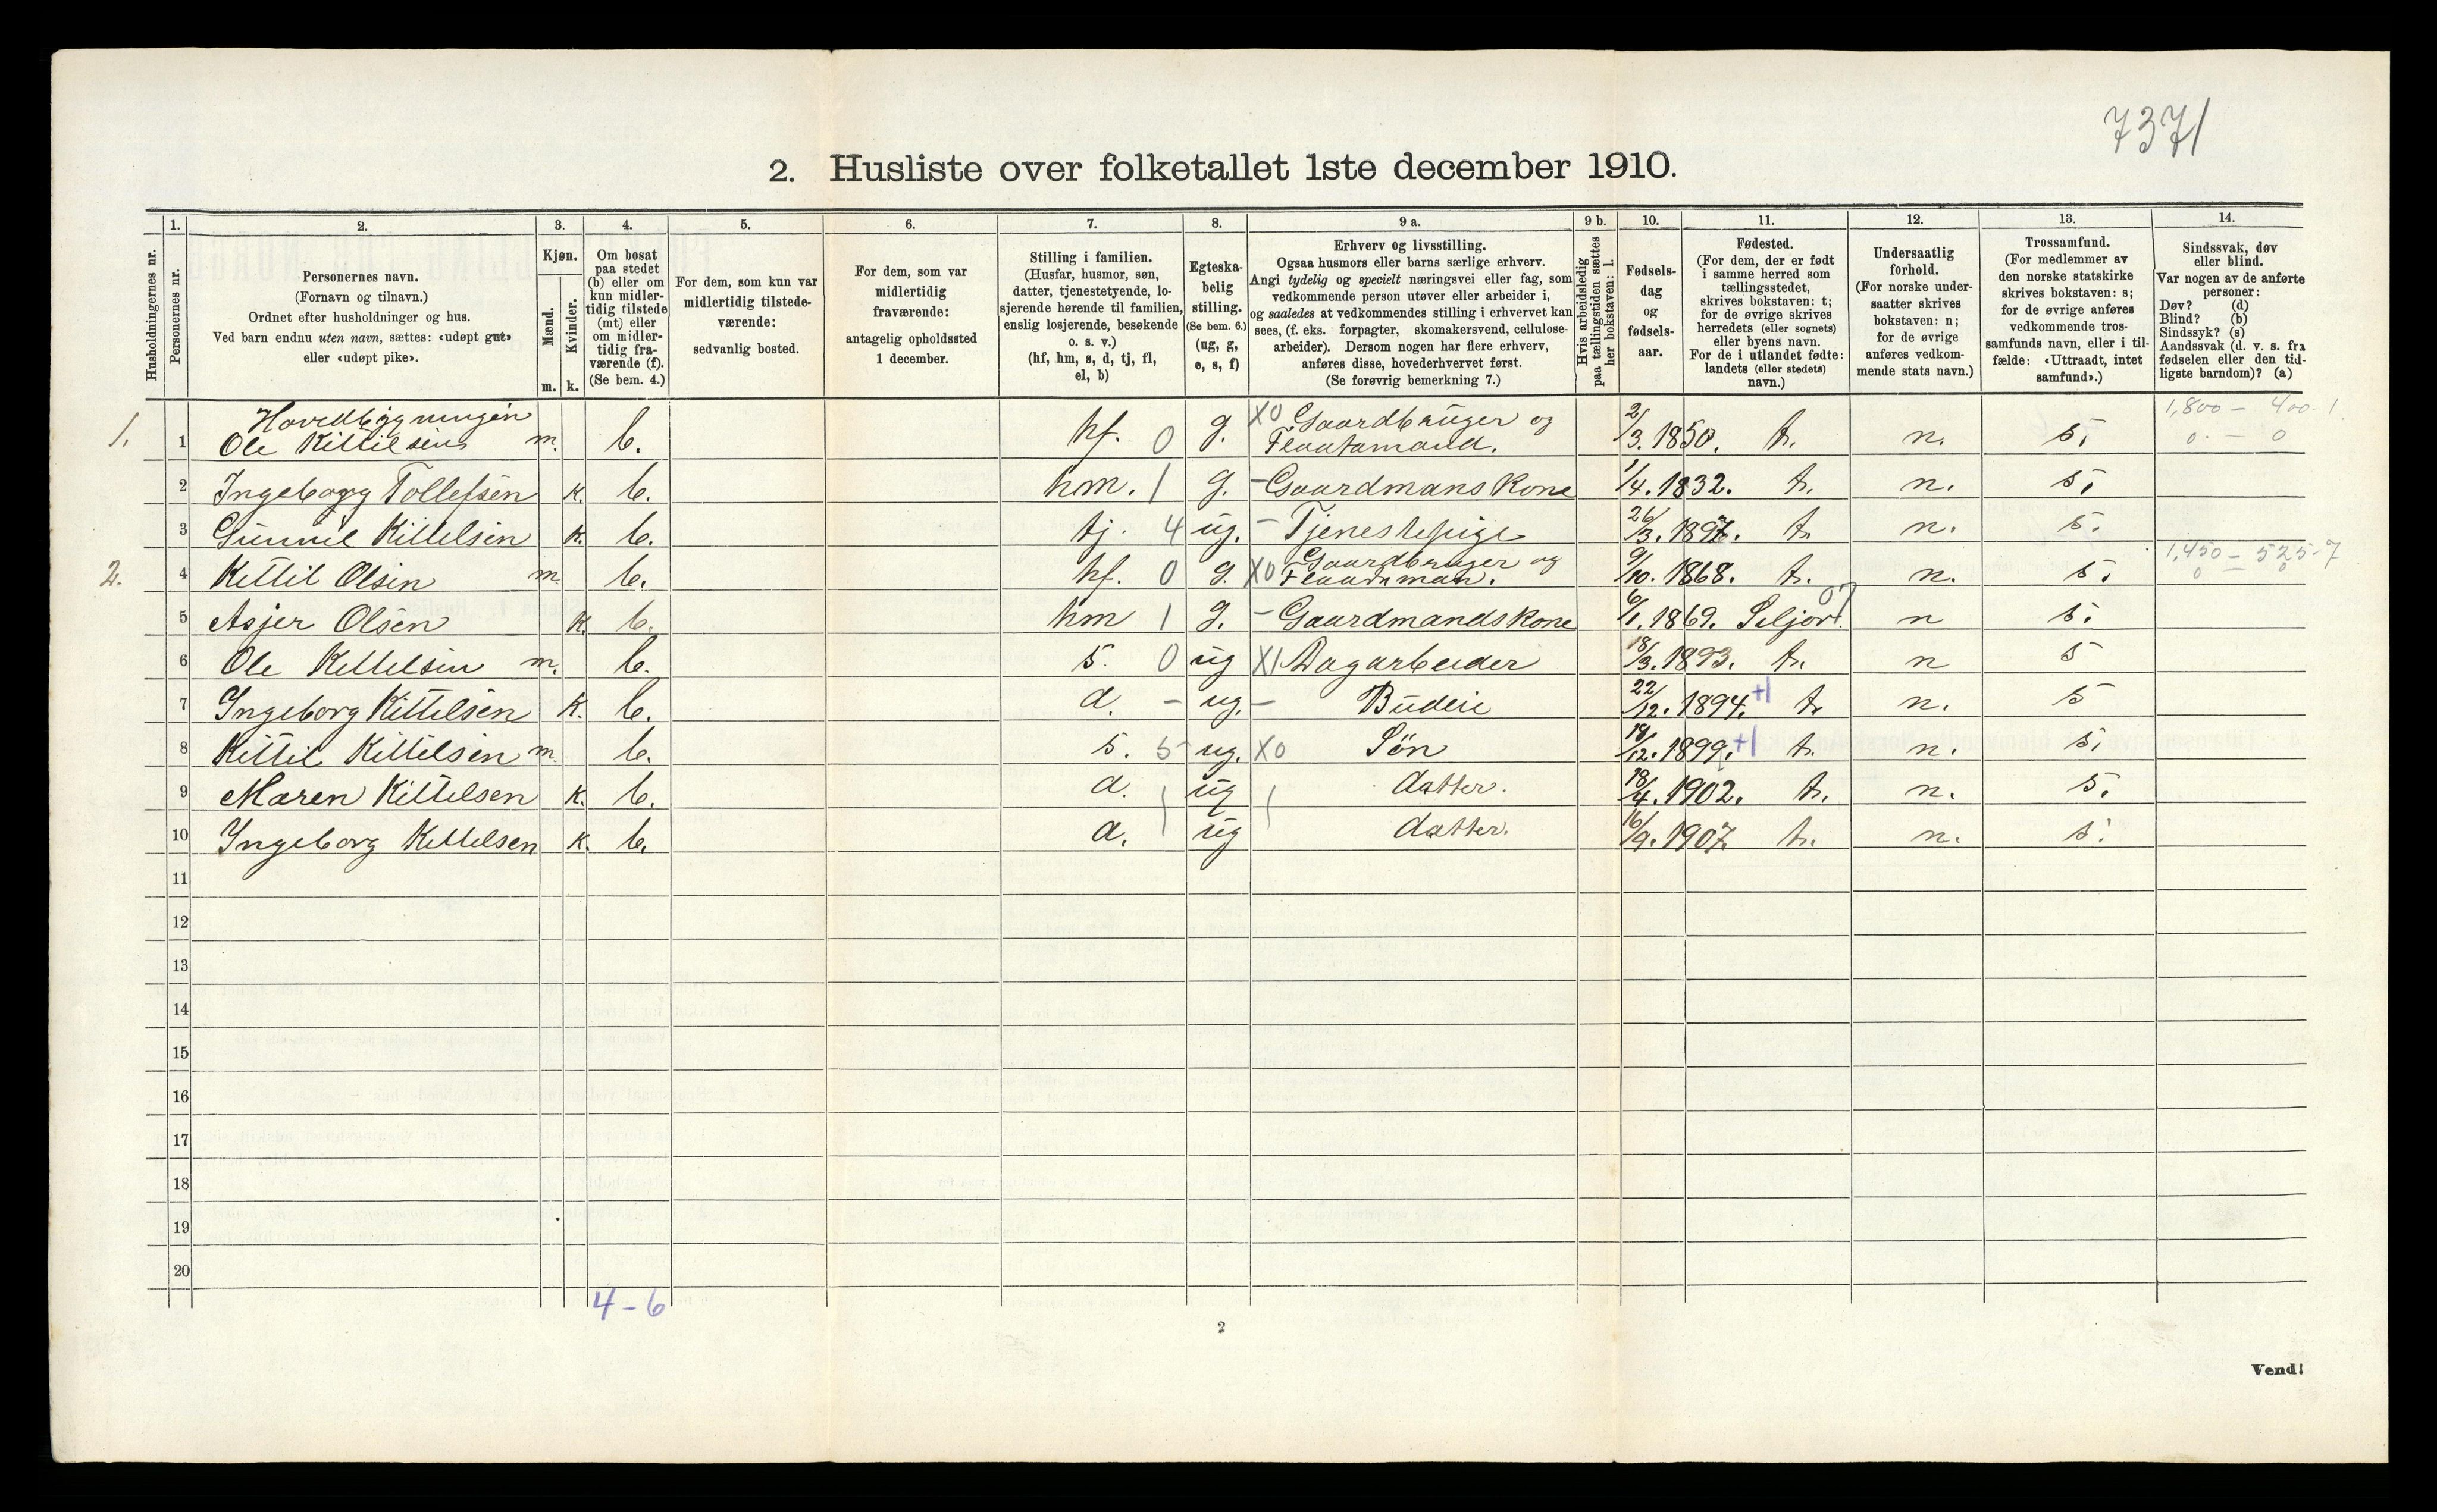 7371
2. Husliste over folketallet 1ste december 1910.
Husholdningernes nr.
1.
Personernes nr.
2.
Personernes navn.
(Fornavn og tilnavn.)
Ordnet efter husholdninger og hus.
Ved barn endnu uten navn, sættes: «udøpt gut»
eller «udøpt pike».
3.
Kjøn.
Mænd.
Kvinder.
m. k.
4.
Om bosat
paa stedet
(b) eller om
kun midler-
tidig tilstede
(mt) eller
om midler-
tidig fra-
værende (f).
(Se bem. 4.)
5.
For dem, som kun var
midlertidig tilstede-
værende:
sedvanlig bosted.
6.
For dem, som var
midlertidig
fraværende:
antagelig opholdssted
1 december.
7.
Stilling i familien.
(Husfar, husmor, søn,
datter, tjenestetyende, lo-
sjerende hørende til familien,
enslig losjerende, besøkende
o. s. v.)
(hf, hm, s, d, tj, fl,
el, b)
8.
Egteska-
belig
stilling.
(Se bem. 6.)
(ug, g,
e, s, f)
9 a.
Erhverv og livsstilling.
Ogsaa husmors eller barns særlige erhverv.
Angi tydelig og specielt næringsvei eller fag, som
vedkommende person utøver eller arbeider i,
og saaledes at vedkommendes stilling i erhvervet kan
sees, (f. eks. forpagter, skomakersvend, cellulose-
arbeider). Dersom nogen har flere erhverv,
anføres disse, hovederhvervet først.
(Se forøvrig bemerkning 7.)
9 b.
Hvis arbeidsledig
paa tællingstiden sættes
her bokstaven: l.
10.
Fødsels-
dag
og
fødsels-
aar.
11.
Fødested.
(For dem, der er født
i samme herred som
tællingsstedet,
skrives bokstaven: t;
for de øvrige skrives
herredets (eller sognets)
eller byens navn.
For de i utlandet fødte:
landets (eller stedets)
navn.)
12.
Undersaatlig
forhold.
(For norske under-
saatter skrives
bokstaven: n;
for de øvrige
anføres vedkom-
mende stats navn.)
13.
Trossamfund.
(For medlemmer av
den norske statskirke
skrives bokstaven: s;
for de øvrige anføres
vedkommende tros-
samfunds navn, eller i til-
fælde: «Uttraadt, intet
samfund».)
14.
Sindssvak, døv
eller blind.
Var nogen av de anførte
personer:
Døv? (d)
Blind? (b)
Sindssyk? (s)
Aandssvak (d. v. s. fra
fødselen eller den tid-
ligste barndom)? (a)
Hovedbygningen X0 Gaardbruger og 1,800 - 400-1
1. 1 Ole Kittilsen m. b. hf. 0 g. Fløatamand. 2/3. 1850. t. n. s. 0 - 0
2 Ingeborg Tollefsen k. b. hm. 1 g. - Gaardmans Kone 1/4. 1832. t. n. s.
3 Gunnil Kittelsen k. b. tj. 4 ug. - Tjenestepige 26/3. 1897. t. n. s.
Gaardbruger og 1,450 - 525-7
2. 4 Kittil Olsen m. b. hf. 0 g. X0 9/10. 1868. t. n. s. 0 - 0
5 Asjer Olsen k. b. hm 1 g. - Gaardmandskone 6/1. 1869. Seljord. 07 n s.
6 Ole Kittelsen m. b. s. 0 ug X1 Dagarbeider 18/3. 1893. t. n s
7 Ingeborg Kittilsen k. b. d. - ug. - Budeie 22/12. 1894. +1 t. n. s
8 Kittil Kittilsen m. b. s. 5 ug. X0 Søn 14/12. 1899. +1 t. n. s.
9 Maren Kittelsen k. b. d. ug datter. 18/4. 1902. t. n. s.
10 Ingeborg Kittelsen k. b. d. ug datter. 16/9. 1907 t. n. s.
11
12
13
14
15
16
17
18
19
20
4 - 6
2
Vend!